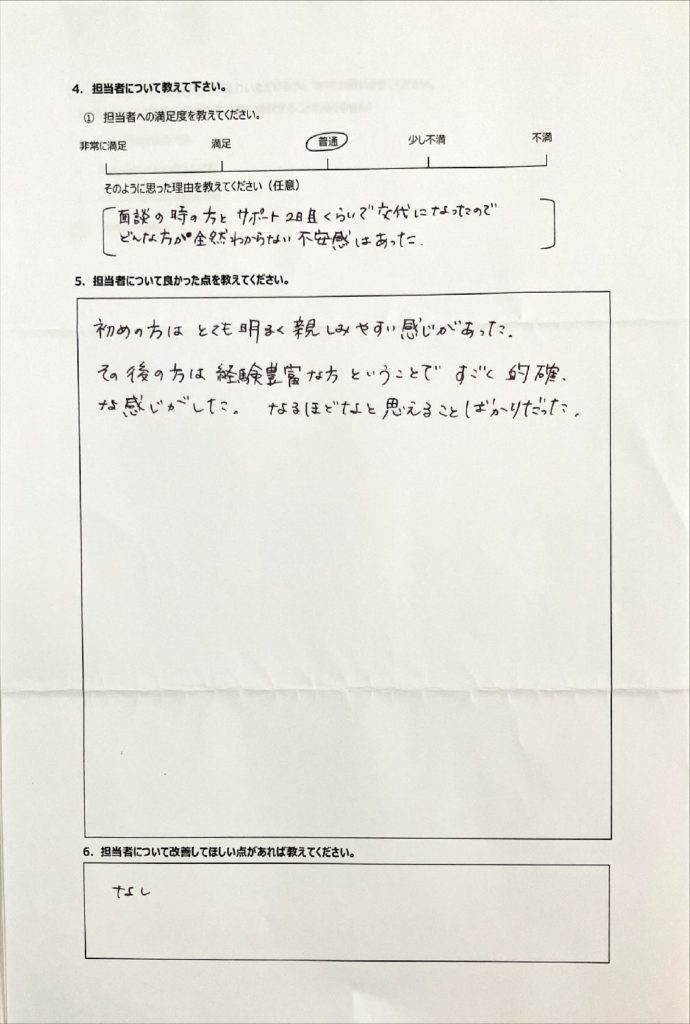 4. 担当者について教えて下さい。
① 担当者への満足度を教えてください。
非常に満足 満足 普通 少し不満 不満
そのように思った理由を教えてください（任意）
面談の時の方とサポート2日目くらいで交代になったので
どんな方が全然わからない不安感はあった.
5. 担当者について良かった点を教えてください。
初めの方は とても明るく親しみやすい感じがあった。
その後の方は経験豊富な方ということで すごく 的確、
な感じがした。 なるほどなと思えることばかりだった。
6. 担当者について改善してほしい点があれば教えてください。
なし